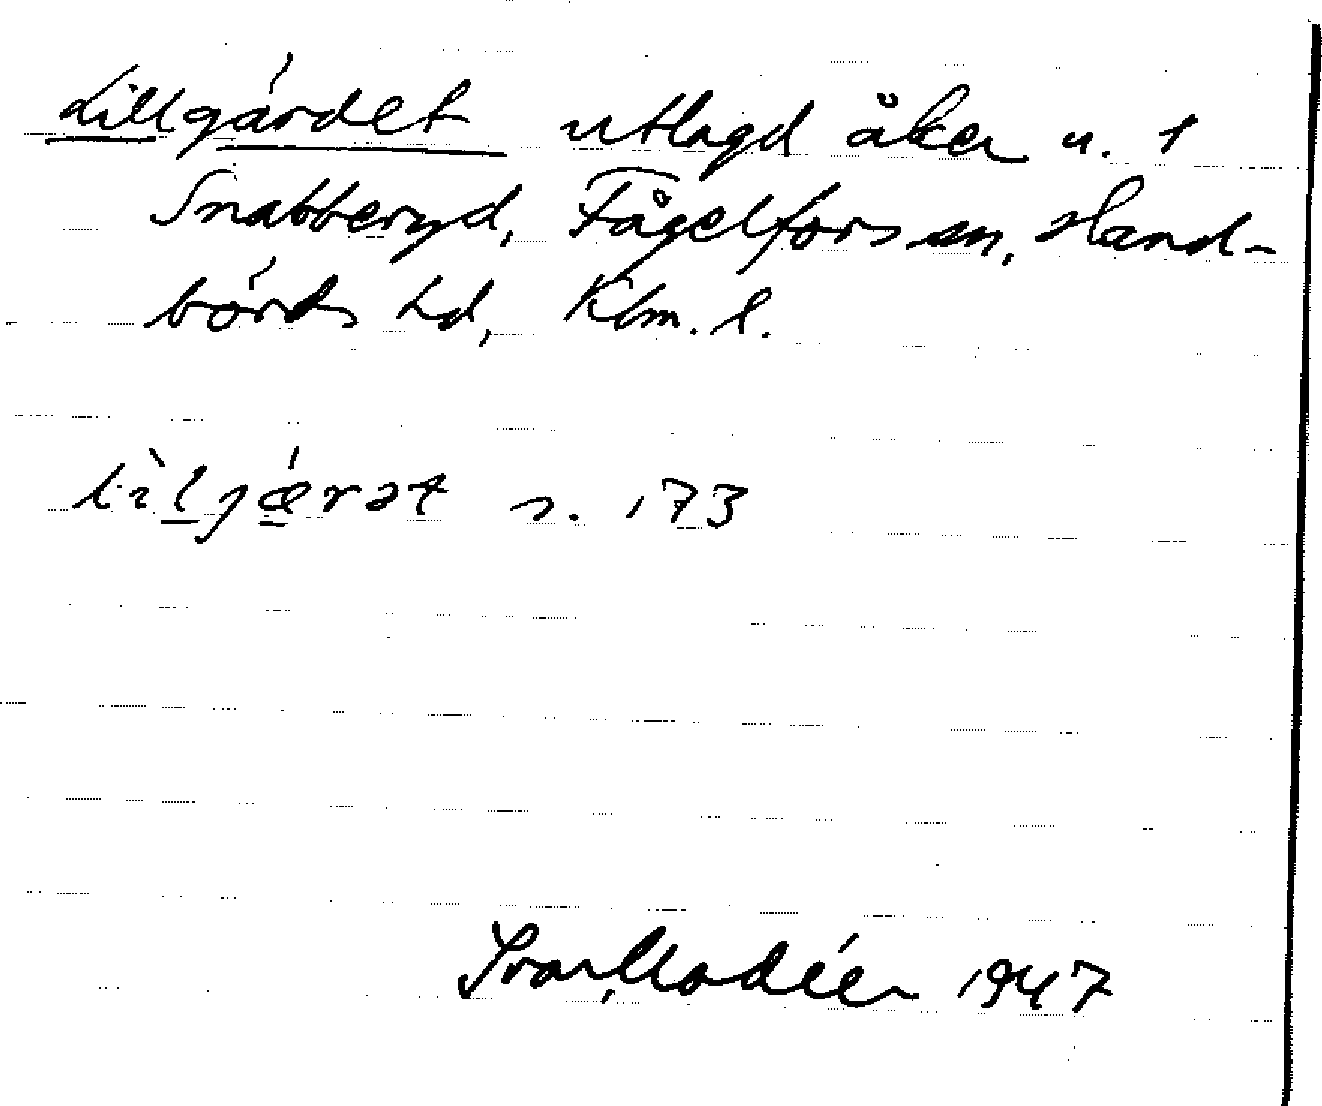 Lillgärdet utlagd åker u. 1
Snabberyd, Fågelfors sn, Hand-
börds hd, Klm. l.
lìl̠jǽ̠rət s. 173
Ivar Modéer 1947